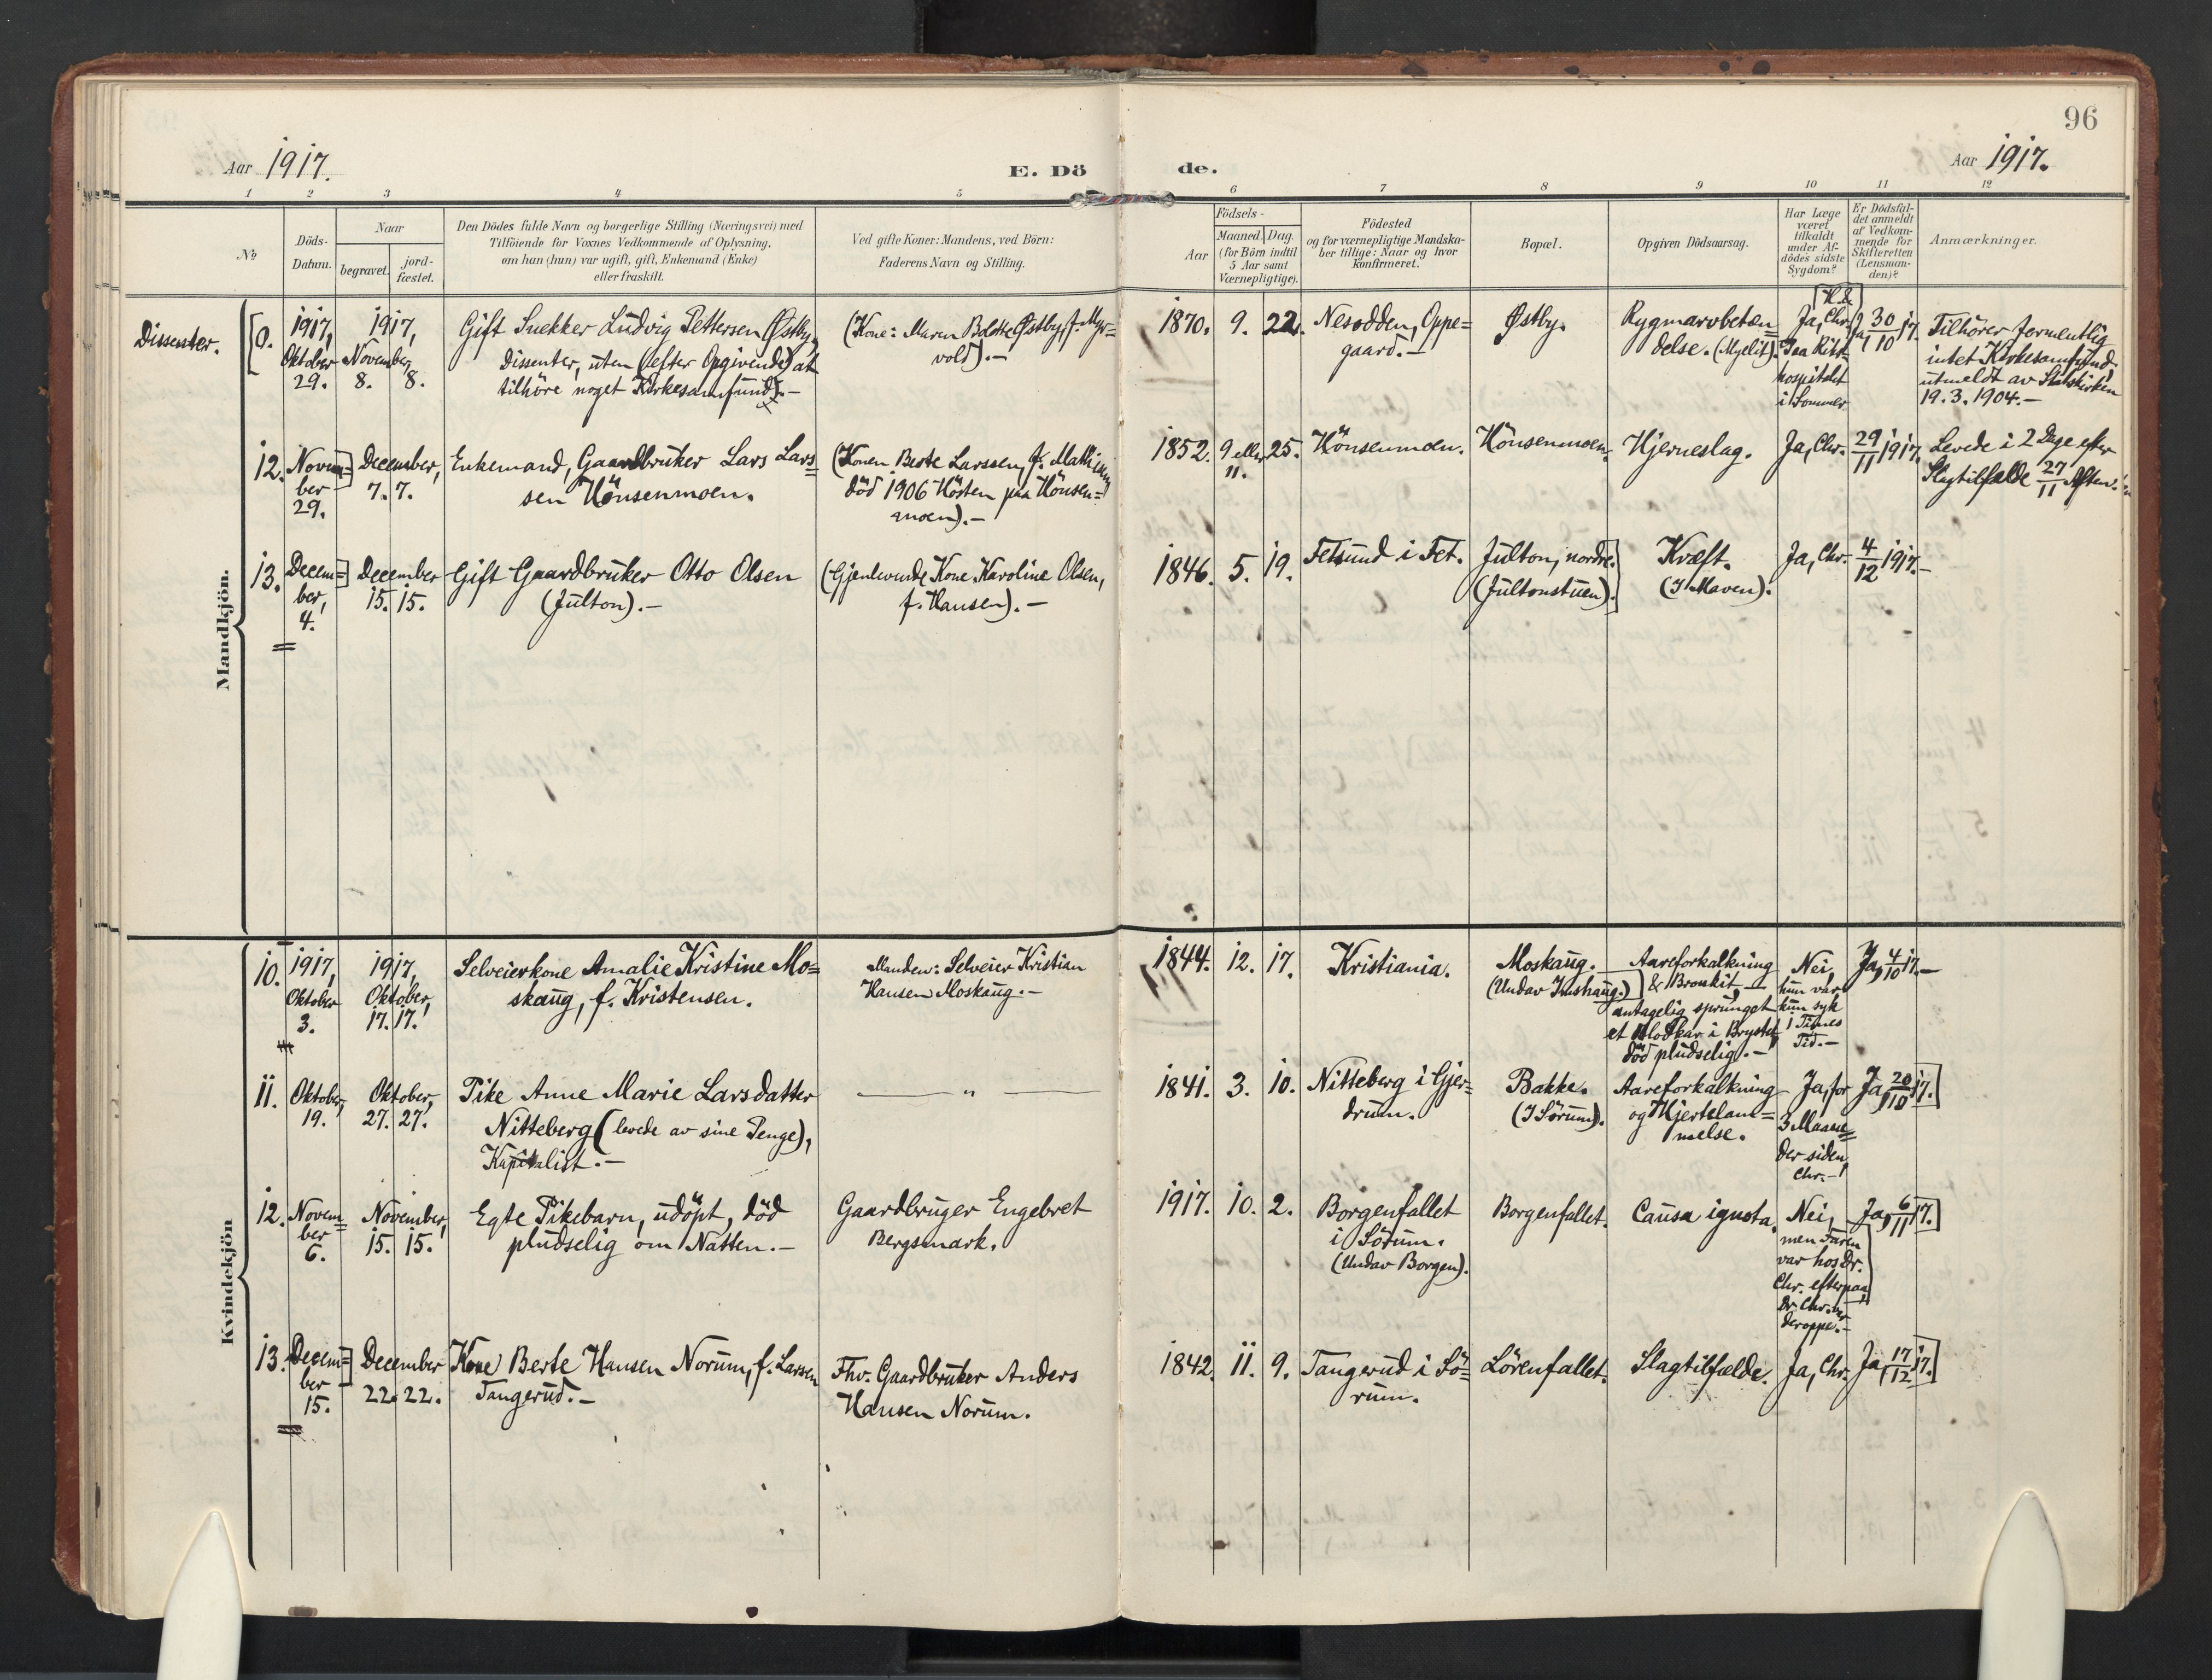 96
Aar 1917.
E. Dö
de.
Aar 1917.
1 2 3 4 5 6 7 8 9 10 11 12
No
Döds-
Datum.
Naar
begravet.
jord-
fæstet.
Den Dödes fulde Navn og borgerlige Stilling (Næringsvei) med
Tilföiende for Voxnes Vedkommende af Oplysning,
om han (hun) var ugift, gift, Enkemand (Enke)
eller fraskilt.
Ved gifte Koner: Mandens, ved Börn:
Faderens Navn og Stilling.
Födsels-
Aar
Maaned.
Dag.
(for Börn indtil
5 Aar samt
Værnepligtige).
Födested
og for værnepligtige Mandska-
ber tillige: Naar og hvor
konfirmeret.
Bopæl.
Opgiven Dödsaarsag.
Har Læge
været
tilkaldt
under Af-
dödes sidste
Sygdom?
Er Dödsfal-
det anmeldt
af Vedkom-
mende for
Skifteretten
(Lensman-
den)?
Anmærkninger.
Mandkjön.
Dissenter.
[0.
1917,
Oktober
29.
1917,
November,
8. 8.
Gift Snekker Ludvig Pettersen Østby,
Dissenter, uten (efter Opgivende) at
tilhöre noget Kirkesamfund). -
(Kone: Maren Bolette Østby, f. Myr=
vold). -
1870. 9. 22.
Nesodden, Oppe=
gaard. -
Østby.
Rygmarvbeten
delse. (Myelit).
Ja, Chr.
Paa Rikt-
hospitalet
i Sommer
Ja 30/10 17.
Tilhörer formentlig
intet Kirkesamfund,
utmeldt av Statskirken
19. 3. 1904. -
12.
Novem=
ber
29.
December,
7. 7.
Enkemand, Gaardbruker Lars Lars=
sen Hönsenmoen.
(Konen Berte Larssen, f.
död 1906 Hösten paa Hönsen=
moen). -
1852. 9 eller 25.
11.
Hönsenmoen.
Hönsenmoen.
Hjerneslag.
Ja, Chr.
29/11 1917.
Levede i 2 Dage efter
Slagtilfælde 27/11 Aften.
13.
Decem=
ber,
4.
December
15. 15.
Gift Gaardbruker Otto Olsen
(Julton). -
(Gjenlevende Kone Karoline Olsen,
f. Hansen). -
1846. 5. 19.
Fetsund i Fet.
Julton, nordre.
(Jultonstuen).
Kræft.
(I Maven).
Ja, Chr.
4/12 1917. -
Kvindekjön
10.
1917,
Oktober
3.
1917,
Oktober,
17. 17.
Selveierkone Amalie Kristine Mo=
skaug, f. Kristensen.
Manden: Selveier Kristian
Hansen Moskaug. -
1844. 12. 17.
Kristiania.
Moskaug.
(Undav Kushaug.)
Aareforkalkning
& Bronkit
antagelig sprunget
et Blodkar i Brystet
död pludselig. -
Nei,
hun var
kun syk
i Times
Tid. -
Ja, 4/10 17. -
11.
Oktober,
19.
Oktober,
27. 27.
Pike Anne Marie Larsdatter
Nitteberg (levede av sine Penge),
Kapitalist. -
— " —
1841. 3. 10.
Nitteberg i Gjer=
drum.
Bakke.
(I Sörum).
Aareforkalkning
og Hjertelam=
melse.
Ja, for
3 Maane
der siden
Chr. -
Ja, 20/10 17.]
12.
Novem=
ber
6.
November,
15. 15.
Egte Pikebarn, udöpt, död
pludselig om Natten. -
Gaardbruger Engebret
Bergsmark.
1917. 10. 2.
Borgenfallet
i Sörum.
(Undav Borgen).
Borgenfallet.
Causa ignota.
Nei,
men Faren
var hos Dr.
Chr. efterpaa,
Dr. Chr. var
deroppe. -
Ja, 6/11 17.]
13.
Decem=
ber
15.
December
22. 22.
Kone Berte Hansen Norum, f. Larsen
Tangerud. -
Fhv. Gaardbruker Anders
Hansen Norum.
1842. 11. 9.
Tangerud i Sö=
rum.
Lörenfallet.
Slagtilfælde.
Ja, Chr.
Ja, 17/12 17.]